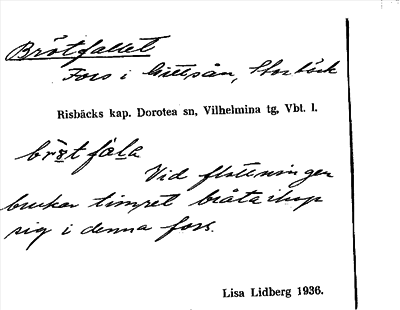 Bråtfallet
Fors i Gittsån, Storbäck
Risbäcks kap. Dorotea sn, Vilhelmina tg, Vbt. l.
Vid flottningen
brukar timret bråta ihop
sig i denna fors.
Lisa Lidberg 1936.